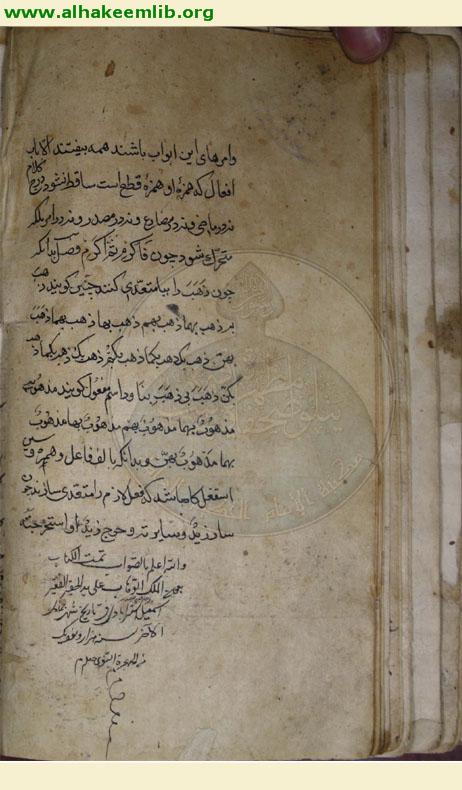 www.alhakeemlib.org
وامرهای این ابواب باشند همه بیفتند الا باب
افعال که همزهٔ او همزهٔ قطع است ساقط نشود در درج کلام
نه در ماضی و نه در مضارع و نه در مصدر و نه در امر بلکه
متحرک شود چون فاکرم ثم اکرم فصل بدانکه
چون ذَهَبَ را ببا متعدی کنند چنین گویند ذهب
به ذهب بهما ذهب بهم ذهب بها ذهب بهما ذهب
بهن ذهب بک ذهب بکما ذهب بکم ذهب بک ذهب بکما ذهب
بکن ذهب بی ذهب بنا و در اسم مفعول گویند مذهوب به
مذهوب بهما مذهوب بهم مذهوب بها مذهوب
بهما مذهوب بهن و بدانکه بالف فاعل و همزه و سین
استفعل گاه باشد که فعل لازم را متعدی سازند چون
سار زید و سایرته و خرج زید و استخرجته
والله اعلم بالصواب تمت الکتاب
الملک الوهاب علی ید الحقیر الفقیر
تاریخ شهر
الآخر سنه هزار و
من الهجرة النبوی